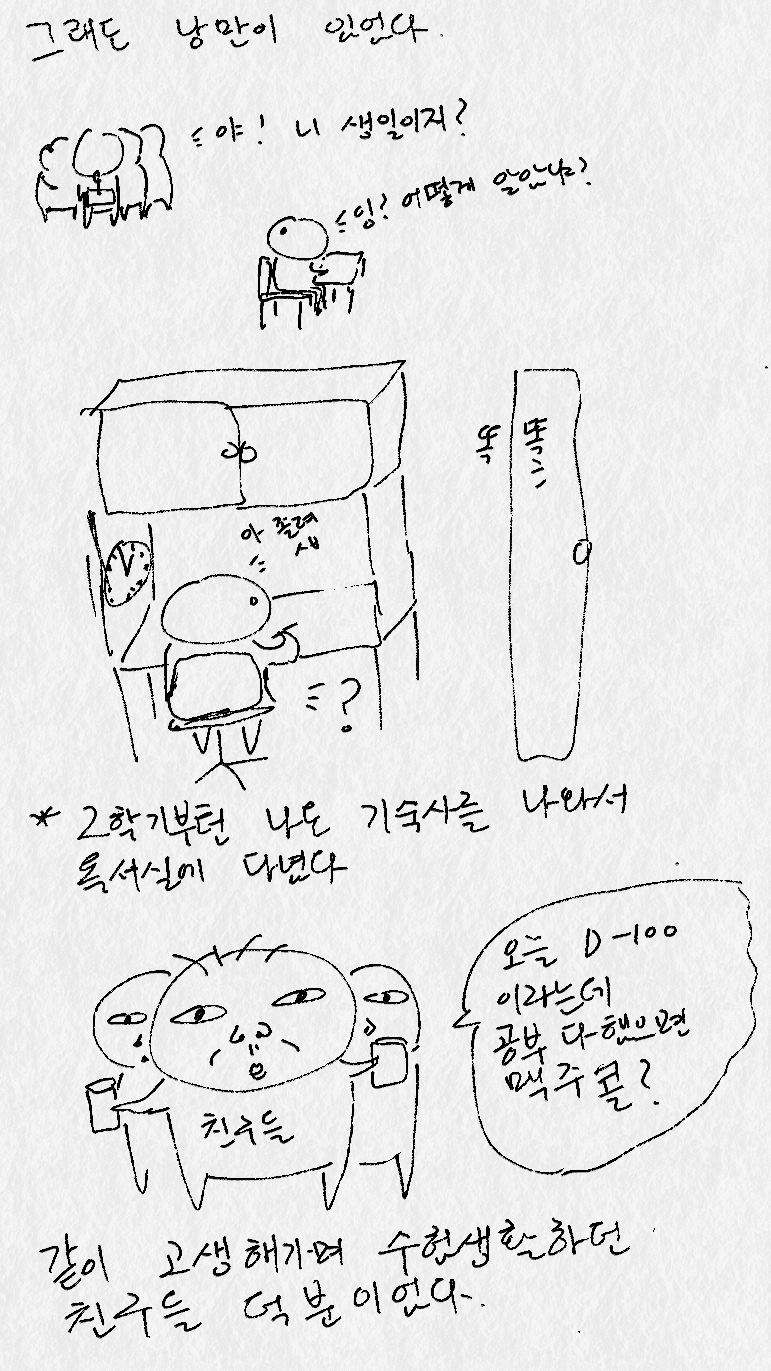 그래도 낭만이 있었다.
야! 니 생일이지?
잉? 어떻게 알았냐?
똑 똑
아 졸려
?
* 2학기부턴 나도 기숙사를 나와서
독서실에 다녔다
오늘 D-100
이라는데
공부 다했으면
맥주 콜?
친구들
같이 고생해가며 수험생활하던
친구들 덕분이었다.